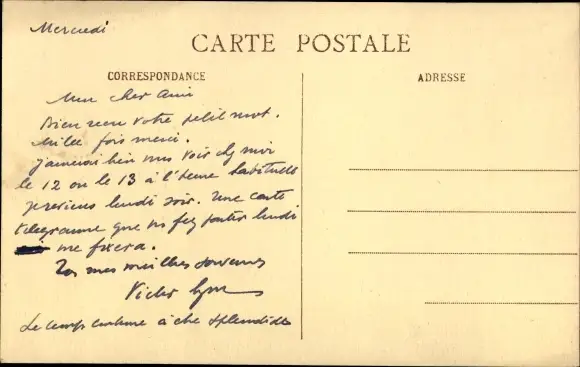 Mercredi
CARTE POSTALE
CORRESPONDANCE
ADRESSE
Mon cher ami
Bien reçu votre petit mot.
Mille fois merci.
J'aimerais bien vous voir chez moi
le 12 ou le 13 à l'heure habituelle
je reviens lundi soir. Une carte
télégramme que vs fez porter lundi
me fixera.
mes meilleurs souvenirs
Victor
Le temps continue à être splendide